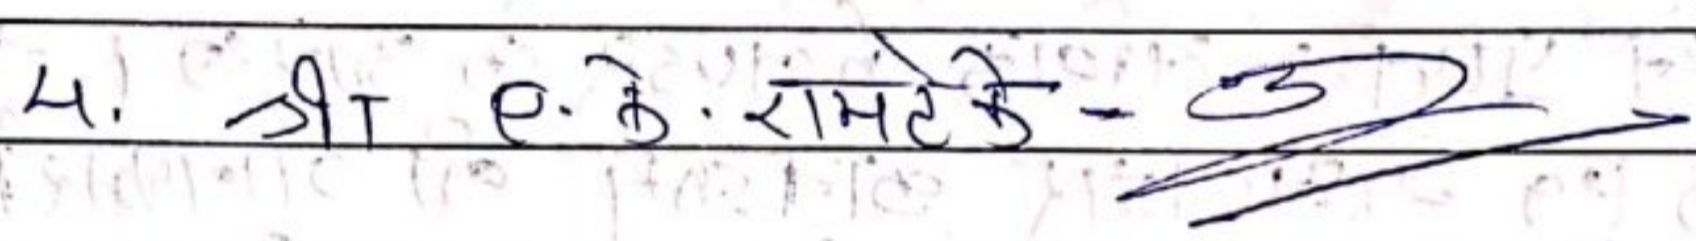 4. श्री ए. के. रामटेके -